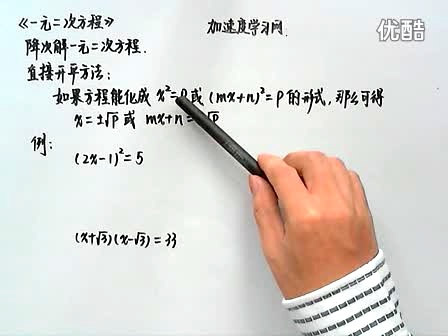 《一元二次方程》 加速度学习网
优酷
降次解一元二次方程.
直接开平方法:
如果方程能化成 x²=p 或 (mx+n)²=p 的形式, 那么可得
x=±√p 或 mx+n=√p
例:
(2x-1)²=5
(x+√3)(x-√3)=33